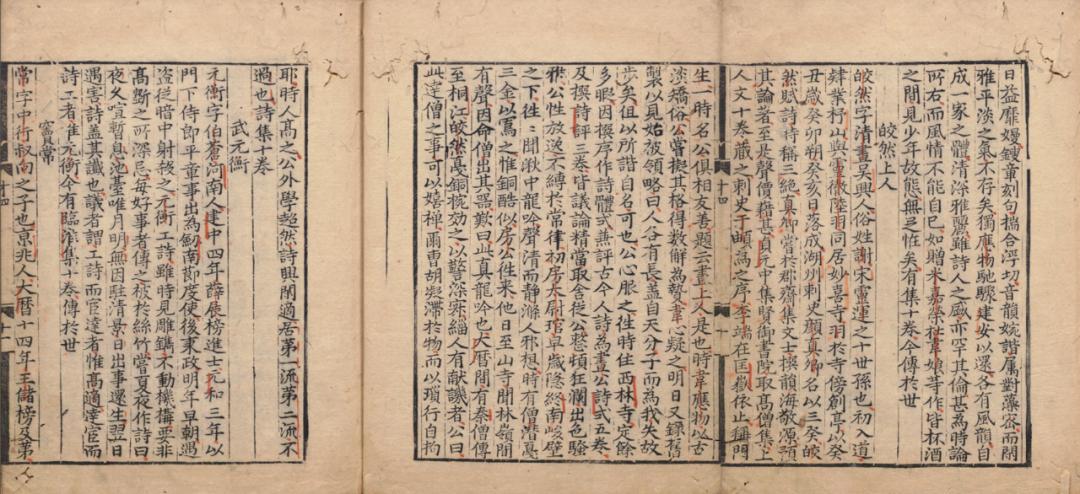 日益靡嫚鍐章刻句揣合浮切音韻婉諧属對藻密而閑
雅平淡之氣不存矣獨應物馳驟建安以還各有風韻自
成一家之體清深雅麗雖詩人之盛亦罕其倫甚為時論
所右而風情不能自已如贈米嘉榮杜韋娘等作皆杯酒
之間見少年故態無足恠矣有集十卷今傳於世
皎然上人
皎然字清晝吳興人俗姓謝宋靈運之十世孫也初入道
肄業杼山與靈徹陸羽同居妙喜寺羽於寺傍創亭以癸
丑歲癸卯朔癸亥日落成湖州刺史顏真卿名以三癸皎
然賦詩時稱三絕真卿嘗於郡齋集文士撰韻海敬源預
其論著至是聲價藉甚貞元中集賢御書院取高僧集上
人文十卷藏之刺史于頔為之序李端在匡嶽依止稱門
生一時名公俱相友善題云晝上人是也時韋應物以古
淡矯俗公嘗擬其格得數解為贄韋心疑之明日又錄舊
製以見始被領略曰人各有長蓋自天分子而為我失故
步矣但以所詣自名可也公心服之往時住西林寺定餘
多暇因撰序作詩體式兼評古今人詩為晝公詩式五卷
及撰詩評三卷皆議論精當取舍從公整頓狂瀾出色騷
雅公性放逸不縛於常律初房太尉琯早歲隱終南峻壁
之下往〻聞湫中龍吟聲清而靜滌人邪想時有僧潛戞
三金以寫之惟銅酷似房公往來他日至山寺聞林嶺間
有聲因命僧出其器歎曰此真龍吟也大曆間有秦僧傳
至桐江皎然戞銅椀効之以警深寂緇人有献譏者公曰
此達僧之事可以嬉禪爾曹胡凝滯於物而以瑣行自拘
十四
十一
耶時人高之公外學超然詩興閑適居第一流第二流不
過也詩集十卷
武元衡
元衡字伯蒼河南人建中四年薛展榜進士元和三年以
門下侍郎平章事出為劒南節度使後秉政明年早朝遇
盜從暗中射殺之元衡工詩雖時見雕鐫不動機構要非
高斲之所深忌每好事者傳之被於絲竹嘗夏夜作詩曰
夜久喧暫息池臺唯月明無因駐清景日出事還生翌日
遇害詩蓋其讖也議者謂工詩而宦達者惟高適達宦而
詩工者惟元衡今有臨淮集十卷傳於世
竇常
常字中行叔向之子也京兆人大曆十四年王儲榜及第
十四
十一